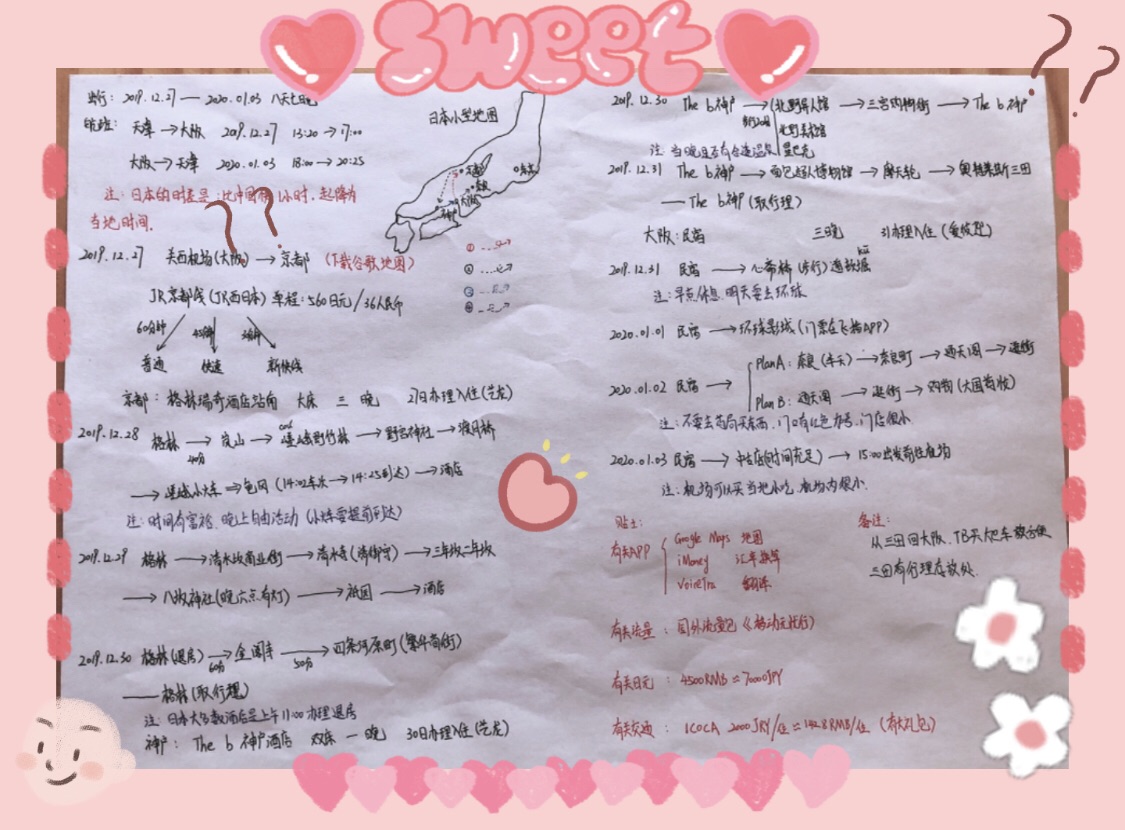 sweet
出行: 2019.12.27 — 2020.01.03 八天七晚
航班: 天津 → 大阪 2019.12.27 13:20 → 17:00
大阪 → 天津 2020.01.03 18:00 → 20:25
注: 日本的时差是:比中国 1小时.起降为
当地时间.
日本小型地图
京都
大阪
神户
东京
2019.12.27 关西机场(大阪) → 京都 (下载谷歌地图)
JR京都线(JR西日本) 单程:560日元/36人民币
60分钟
普通 快速 新快线
京都: 格林瑞奇酒店站南 大床 三 晚 27日办理入住(艺龙)
2019.12.28 格林 → 岚山 → 野竹林 → 野宫神社 → 渡月桥
40分
→ 小火车 ⇒ 龟冈 (14:02车次 → 14:25到达) → 酒店
注: 时间有富裕.晚上自由活动 (火车要提前到达)
2019.12.29 格林 → 清水坂商业街 → 清水寺(请御守) → 三年坂二年坂
→ 八坂神社(晚六点有灯) → 祇园 → 酒店
2019.12.30 格林(退房) → 金阁寺 → 四条河原町(繁华商街)
60分 50分
— 格林(取行李)
注: 日本大多数酒店是上午11:00办理退房
神户: The b 神户酒店 双床 一 晚 30日办理入住(艺龙)
2019.12.30 The b神户 → 北野异人馆 → 三宫购物街 → The b神户
北野美术馆
注: 当晚是否有合适温泉
星巴克
2019.12.31 The b神户 → 面包超人博物馆 → 摩天轮 → 奥特莱斯三田
— The b神户(取行理)
大阪:民宿 三晚 31办理入住(爱彼迎)
2019.12.31 民宿 → 心斋桥(步行)道顿堀
注: 早点休息.明天要去环球
2020.01.01 民宿 → 环球影城(门票在飞猪APP)
2020.01.02 民宿 →
Plan A: 奈良(半天) → 奈良町 → 通天阁 → 逛街
Plan B: 通天阁 → 逛街 → 购物(大国药妆)
注: 不要去药局买东西.门口有红色为号.门店很小
2020.01.03 民宿 → 中古店(时间充足) → 15:00出发前往机场
注: 机场可以买当地小吃.机场内很小.
贴士:
有关APP
Google Maps 地图
iMoney 汇率换算
VoiceTra 翻译
备注:
从三田回大阪.TB买大巴车较方便
三田有行理存放处.
有关流量: 国外流量包《移动运行》
有关日元: 4500RMB ≈ 70000JPY
有关交通: ICOCA 2000JPY/位 ≈ 142.8RMB/位 (有大礼包)